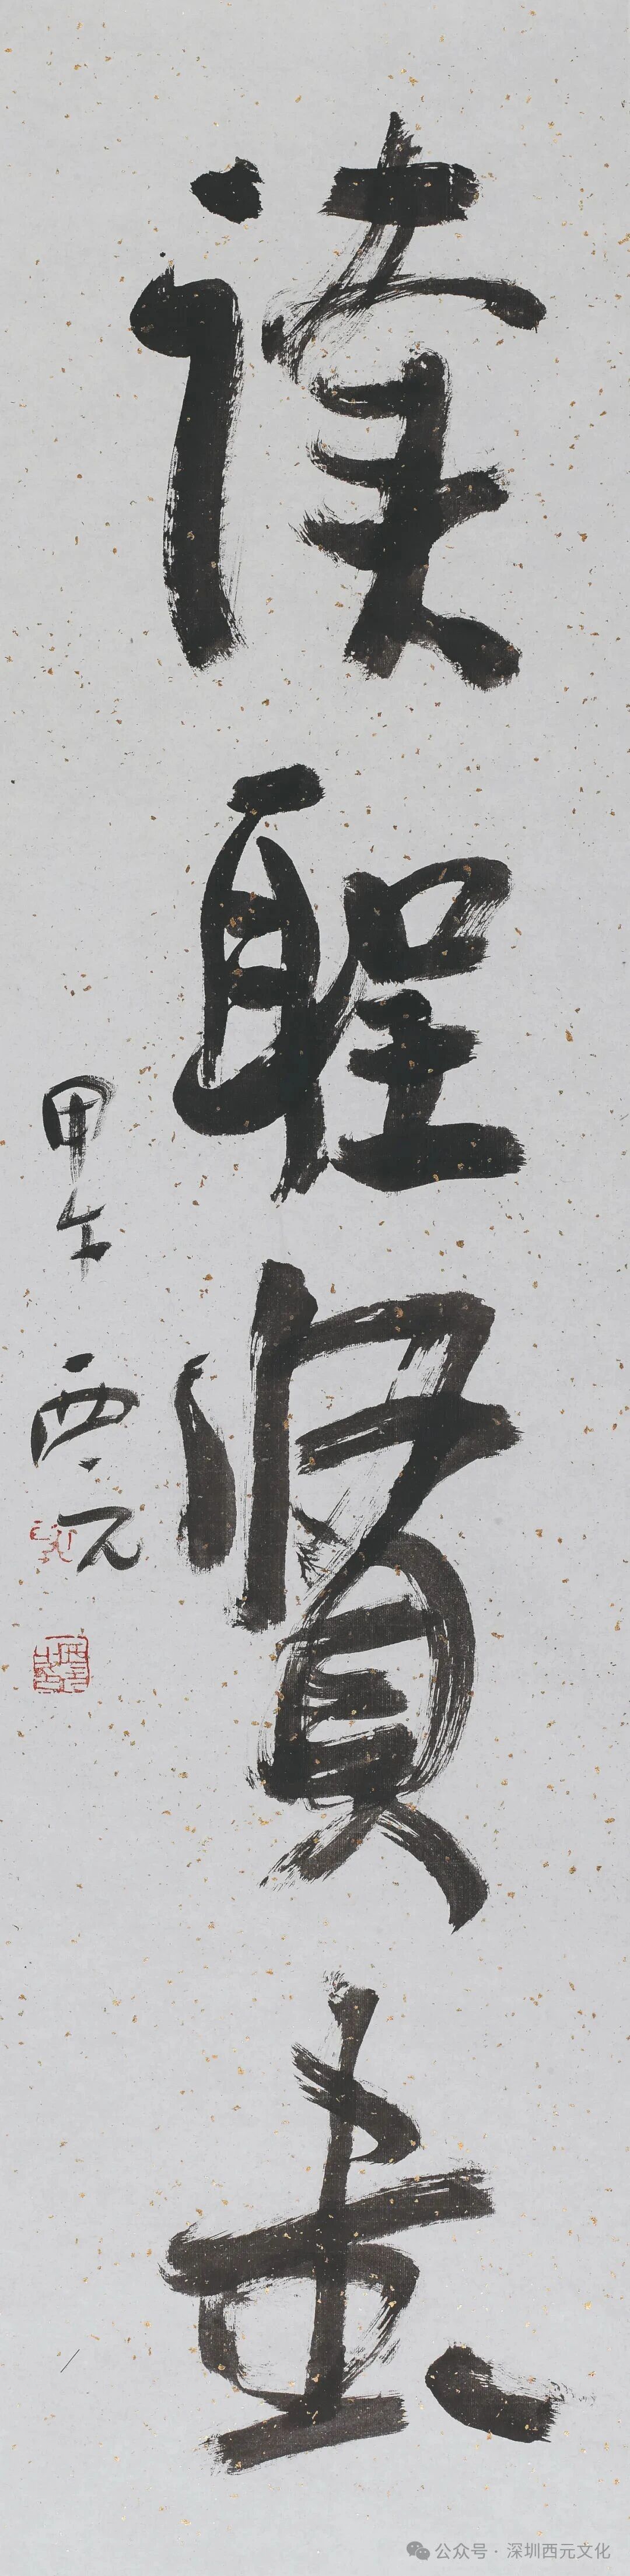 读聖賢书
甲午 西元
公众号·深圳西元文化